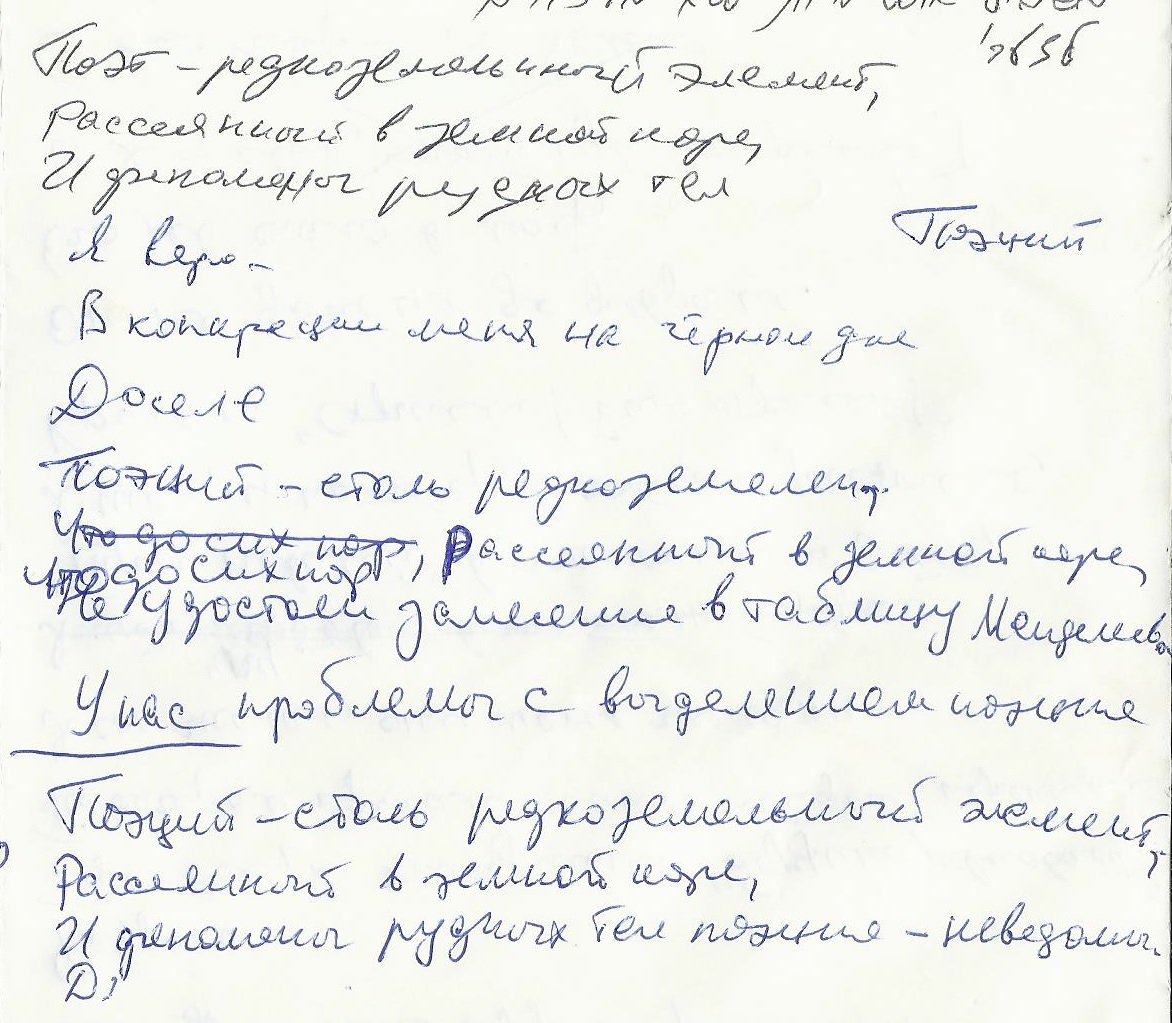 Поэт – редкоземельный элемент,
Рассеянный в земной коре,
И феномены рудных тел
Поэций
Я верю –
В конкреции меня на чёрном дне
Доселе
Поэций – столь редкоземелен,
Что до сих пор, Рассеянный в земной коре,
Что до сих пор
Не удостоен занесения в таблицу Менделеева
У нас проблемы с выделением поэция
Поэций – столь редкоземельный элемент,
Рассеянный в земной коре,
И феномены рудных тел поэция – неведомы.